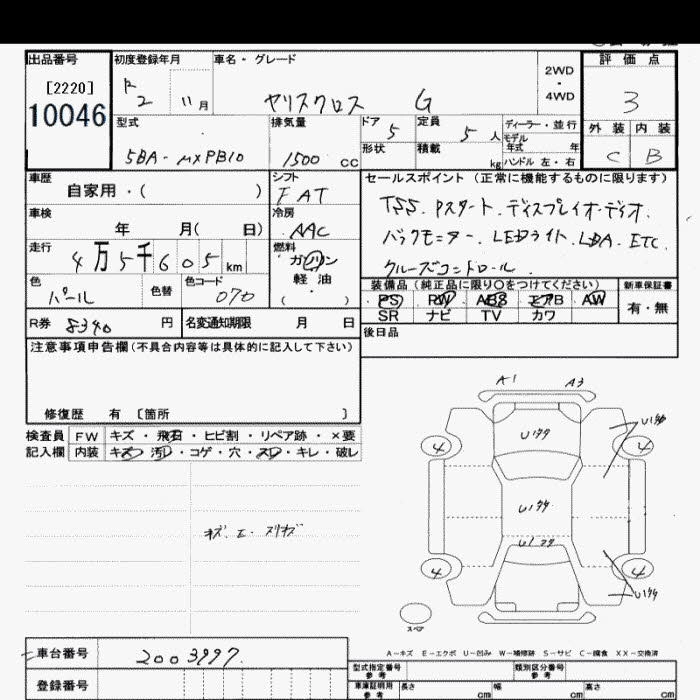 出品番号 初度登録年月 車名・グレード 評価点
[2220] R 2WD
10046 2 11月 ヤリスクロス G ・ 3
4WD
型式 排気量 ドア 5 定員 5人 ディーラー・並行 外装 内装
5BA-MXPB10 1500cc 形状 積載 kg モデル年式 年 C B
ハンドル 左・右
車歴 シフト セールスポイント(正常に機能するものに限ります)
自家用・( ) FAT TSS. Pスタート. ディスプレイオーディオ.
車検 冷房 バックモニター. LEDライト. LDA. ETC.
年 月( 日) AAC クルーズコントロール.
走行 燃料
4万5千605km ガソリン
色 色替 色コード 軽油
パール 070 ( )
装備品(純正品に限り○をつけてください) 新車保証書
PS PW ABS エアB AW 有・無
SR ナビ TV カワ
R券 8340円 名変通知期限 月 日 後日品
注意事項申告欄(不具合内容等は具体的に記入して下さい)
修復歴 有 〔箇所 〕
検査員 FW キズ・飛石・ヒビ割・リペア跡・×要
記入欄 内装 キズ・汚れ・コゲ・穴・スレ・キレ・破レ
A1 A3
4 4
4 4
スペア
A-キズ E-エクボ U-凹み W-補修跡 S-サビ C-腐食 XX-交換済
車台番号 2003997.
登録番号
型式指定番号 参考 類別区分番号 参考
車庫証明用 参考 長さ cm 幅 cm 高さ cm